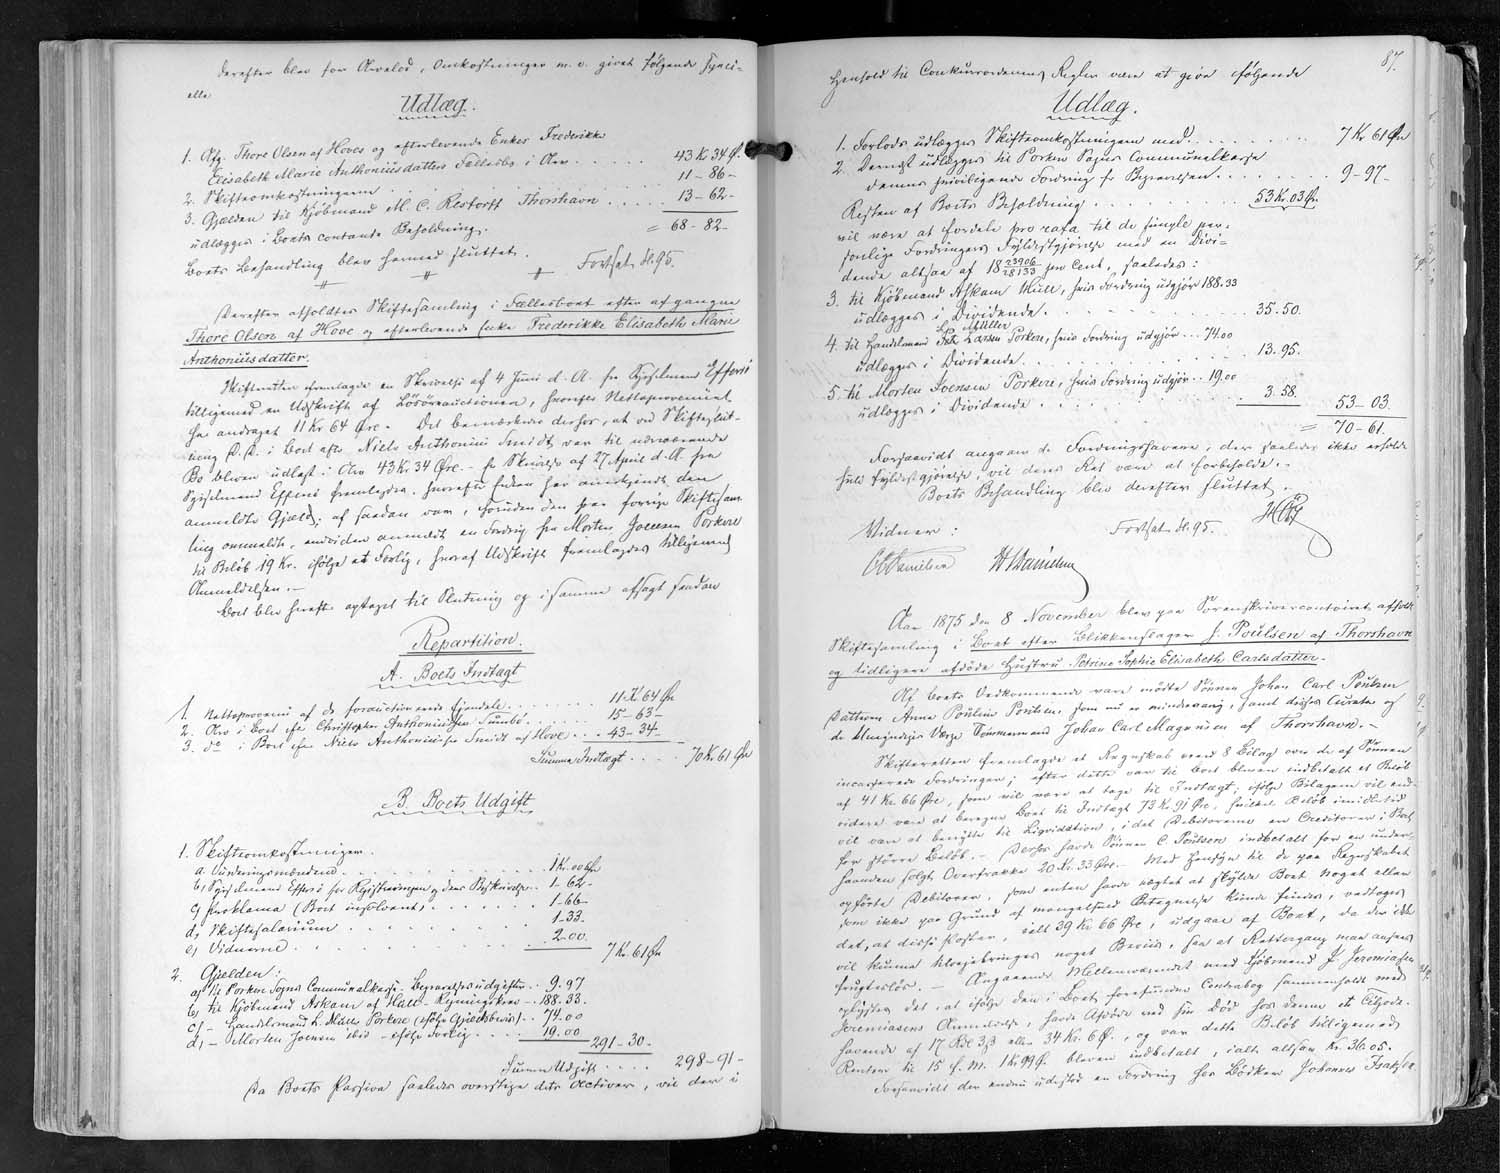 derefter blev for Arvelod, Omkostninger m. v. givet følgende speci-
elle
Udlæg.
1. Afg. Thore Olsen af Hoves og efterlevende Enke Frederikke
Elisabeth Marie Anthoniusdatters Fællesbo i Arv . . . . . 43 Kr 34 Ø.
2. Skifteomkostningerne . . . . . 11 - 86 -
3. Gjælden til Kjøbmand M. C. Restorff Thorshavn . . . . . 13 - 62 -
udlægges i Boets contante Beholdning. = 68 - 82 -
Boets Behandling blev hermed sluttet.
Fortsat fl. 95.
Derefter afholdtes Skiftesamling i Fællesboet efter afgangne
Thore Olsen af Hove og efterlevende Enke Frederikke Elisabeth Marie
Anthoniusdatter.
Skifteretten fremlagde en Skrivelse af 4 Juni d. A. fra Sysselmand Effersø
tilligemed en Udskrift af Løsøreauctionen, hvorefter Nettoprovenuet
har andraget 11 Kr 64 Øre. - Det bemærkedes derhos, at ved Skifteslut-
ning D. D. i Boet efter Niels Anthonius Smidt var til nærværende
Bo bleven udlagt i Arv 43 Kr. 34 Øre. - En Skrivelse af 27 April d. A. fra
Sysselmand Effersø fremlagdes, hvorefter Enken har anerkjendt den
anmeldte Gjæld; af saadan var, foruden den paa forrige Skiftesam-
ling anmeldte, endvidere anmeldt en Fordring fra Morten Joensen Porkere
til Beløb 19 Kr. ifølge et Forlig, hvoraf Udskrift fremlagdes tilligemed
Anmeldelsen. -
Boet blev herefter optaget til Slutning og i samme afsagt saadan
Repartition.
A. Boets Indtægt
1. Nettoprovenu af de forauctionerede Ejendele . . . . 11 Kr 64 Ør
2. Arv i Boet efter Christopher Anthoniussen Sumbø . . . . 15 - 63 -
3. do i Boet efter Niels Anthoniussen Smidt af Hove . . . 43 - 34 -
Summa Indtægt . . . . 70 Kr 61 Ør
B. Boets Udgift
1. Skifteomkostninger.
a. Vurderingsmændene . . . . 1 Kr. 00 Ør
b, Sysselmand Effersø for Registreringen og dens Beskrivelse . . 1 - 62 -
c, Proklama (Boet insolvent) . . . . 1 - 66 -
d, Skiftesalarium . . . . 1 - 33.
e, Vidnerne . . . . 2 - 00. 7 Kr. 61 Ør
2. Gjælden:
a, til Porkere Sogns Communalkasse - Begravelsesudgifter . . 9. 97
b, til Kjøbmand Askam af Hull - Regningskrav - 188. 33.
c, - Handelsmand L. Müller Porkere (ifølge Gjældsbevis) . . 74. 00
d, - Morten Joensen ibid - ifølge Forlig . . . 19. 00 291 - 30 -
Summa Udgift . . . . 298 - 91 -
Da Boets Passiva saaledes overstige dets Activer, vil der i
87.
Henhold til Concursordenens Regler være at give følgende
Udlæg.
1. Forlods udlægges Skifteomkostningerne med . . . . . 7 Kr 61 Ør
2. Dernæst udlægges til Porkere Sogns Communalkasse
dennes priviligerede Fordring for Begravelsen . . . . . 9 - 97 -
Resten af Boets Beholdning . . . . . 53 Kr. 03 Ør
vil være at fordele pro rata til de simple per-
sonlige Fordringers Fyldestgjørelse med en Divi-
dende altsaa af 18 23906/28133 per Cent, saaledes:
3. til Kjøbmand Askam Hull, hvis Fordring udgjør 188. 33
udlægges i Dividende . . . . . 35. 50.
4. til Handelsmand L. Müller Porkere, hvis Fordring udgjør . . . 74. 00
udlægges i Dividende . . . . . 13. 95.
5. til Morten Joensen Porkere, hvis Fordring udgjør . . 19. 00
udlægges i Dividende . . . . . 3. 58. 53 - 03.
= 70 - 61.
Forsaavidt angaar de Fordringshavere, der saaledes ikke erholde
fuld Fyldestgjørelse, vil deres Ret være at forbeholde. -
Boets Behandling blev derefter sluttet. -
Vidner: Fortsat fl. 95.
Aar 1875 den 8 November blev paa Sorenskrivercontoiret afholdt
Skiftesamling i Boet efter Blikkenslager J. Poulsen af Thorshavn
og tidligere afdøde Hustru Petrine Sophie Elisabeth Carlsdatter. -
Af Boets Vedkommende vare mødte Sønnen Johan Carl Poulsen
Datteren Anna Pouline Poulsen, som nu er mindreaarig, samt disses Curator og
de Umyndiges Værge Tømmermand Johan Carl Magnusen af Thorshavn. -
Skifteretten fremlagde et Regnskab med 8 Bilag over de af Sønnen
incasserede Fordringer; efter dette var til Boet bleven indbetalt et Beløb
af 41 Kr. 66 Øre, som vil være at tage til Indtægt; ifølge Bilagene vil end-
videre være at beregne Boet til Indtægt 73 Kr. 91 Øre, hvilket Beløb imidlertid
vil være at benytte til Liqvidation, idet Debitorerne ere Creditorer i Boet
for større Beløb. - Derhos havde Sønnen C. Poulsen indbetalt for en under-
haanden solgt Overfrakke 20 Kr. 33 Øre. - Med Hensyn til de paa Regnskabet
opførte Debitorer, som enten havde nægtet at skylde Boet noget eller
som ikke paa Grund af mangelfuld Betegnelse kunde findes, vedtoges
det, at disse Poster, ialt 39 Kr 66 Øre, udgaar af Boet, da der ikke
vil kunne tilvejebringes noget Bevis, saa at Rettergang maa ansees
frugtesløs. - Angaaende Mellemværendet med Kjøbmand J. Jeremiassen
oplystes det, at ifølge den i Boet forefundne Contrabog sammenholdt med
Jeremiasens Anmeldelse, havde Afdøde ved sin Død hos denne et Tilgode-
havende af 17 Rdl 3 ß eller 34 Kr. 6 Ø., og var dette Beløb tilligemed
Renter til 15 f. M. 1 Kr 99 Ø. bleven indbetalt, ialt altsaa Kr. 36. 05.
Forsaavidt der endnu udestod en Fordring hos Bødker Johannes Isaksen